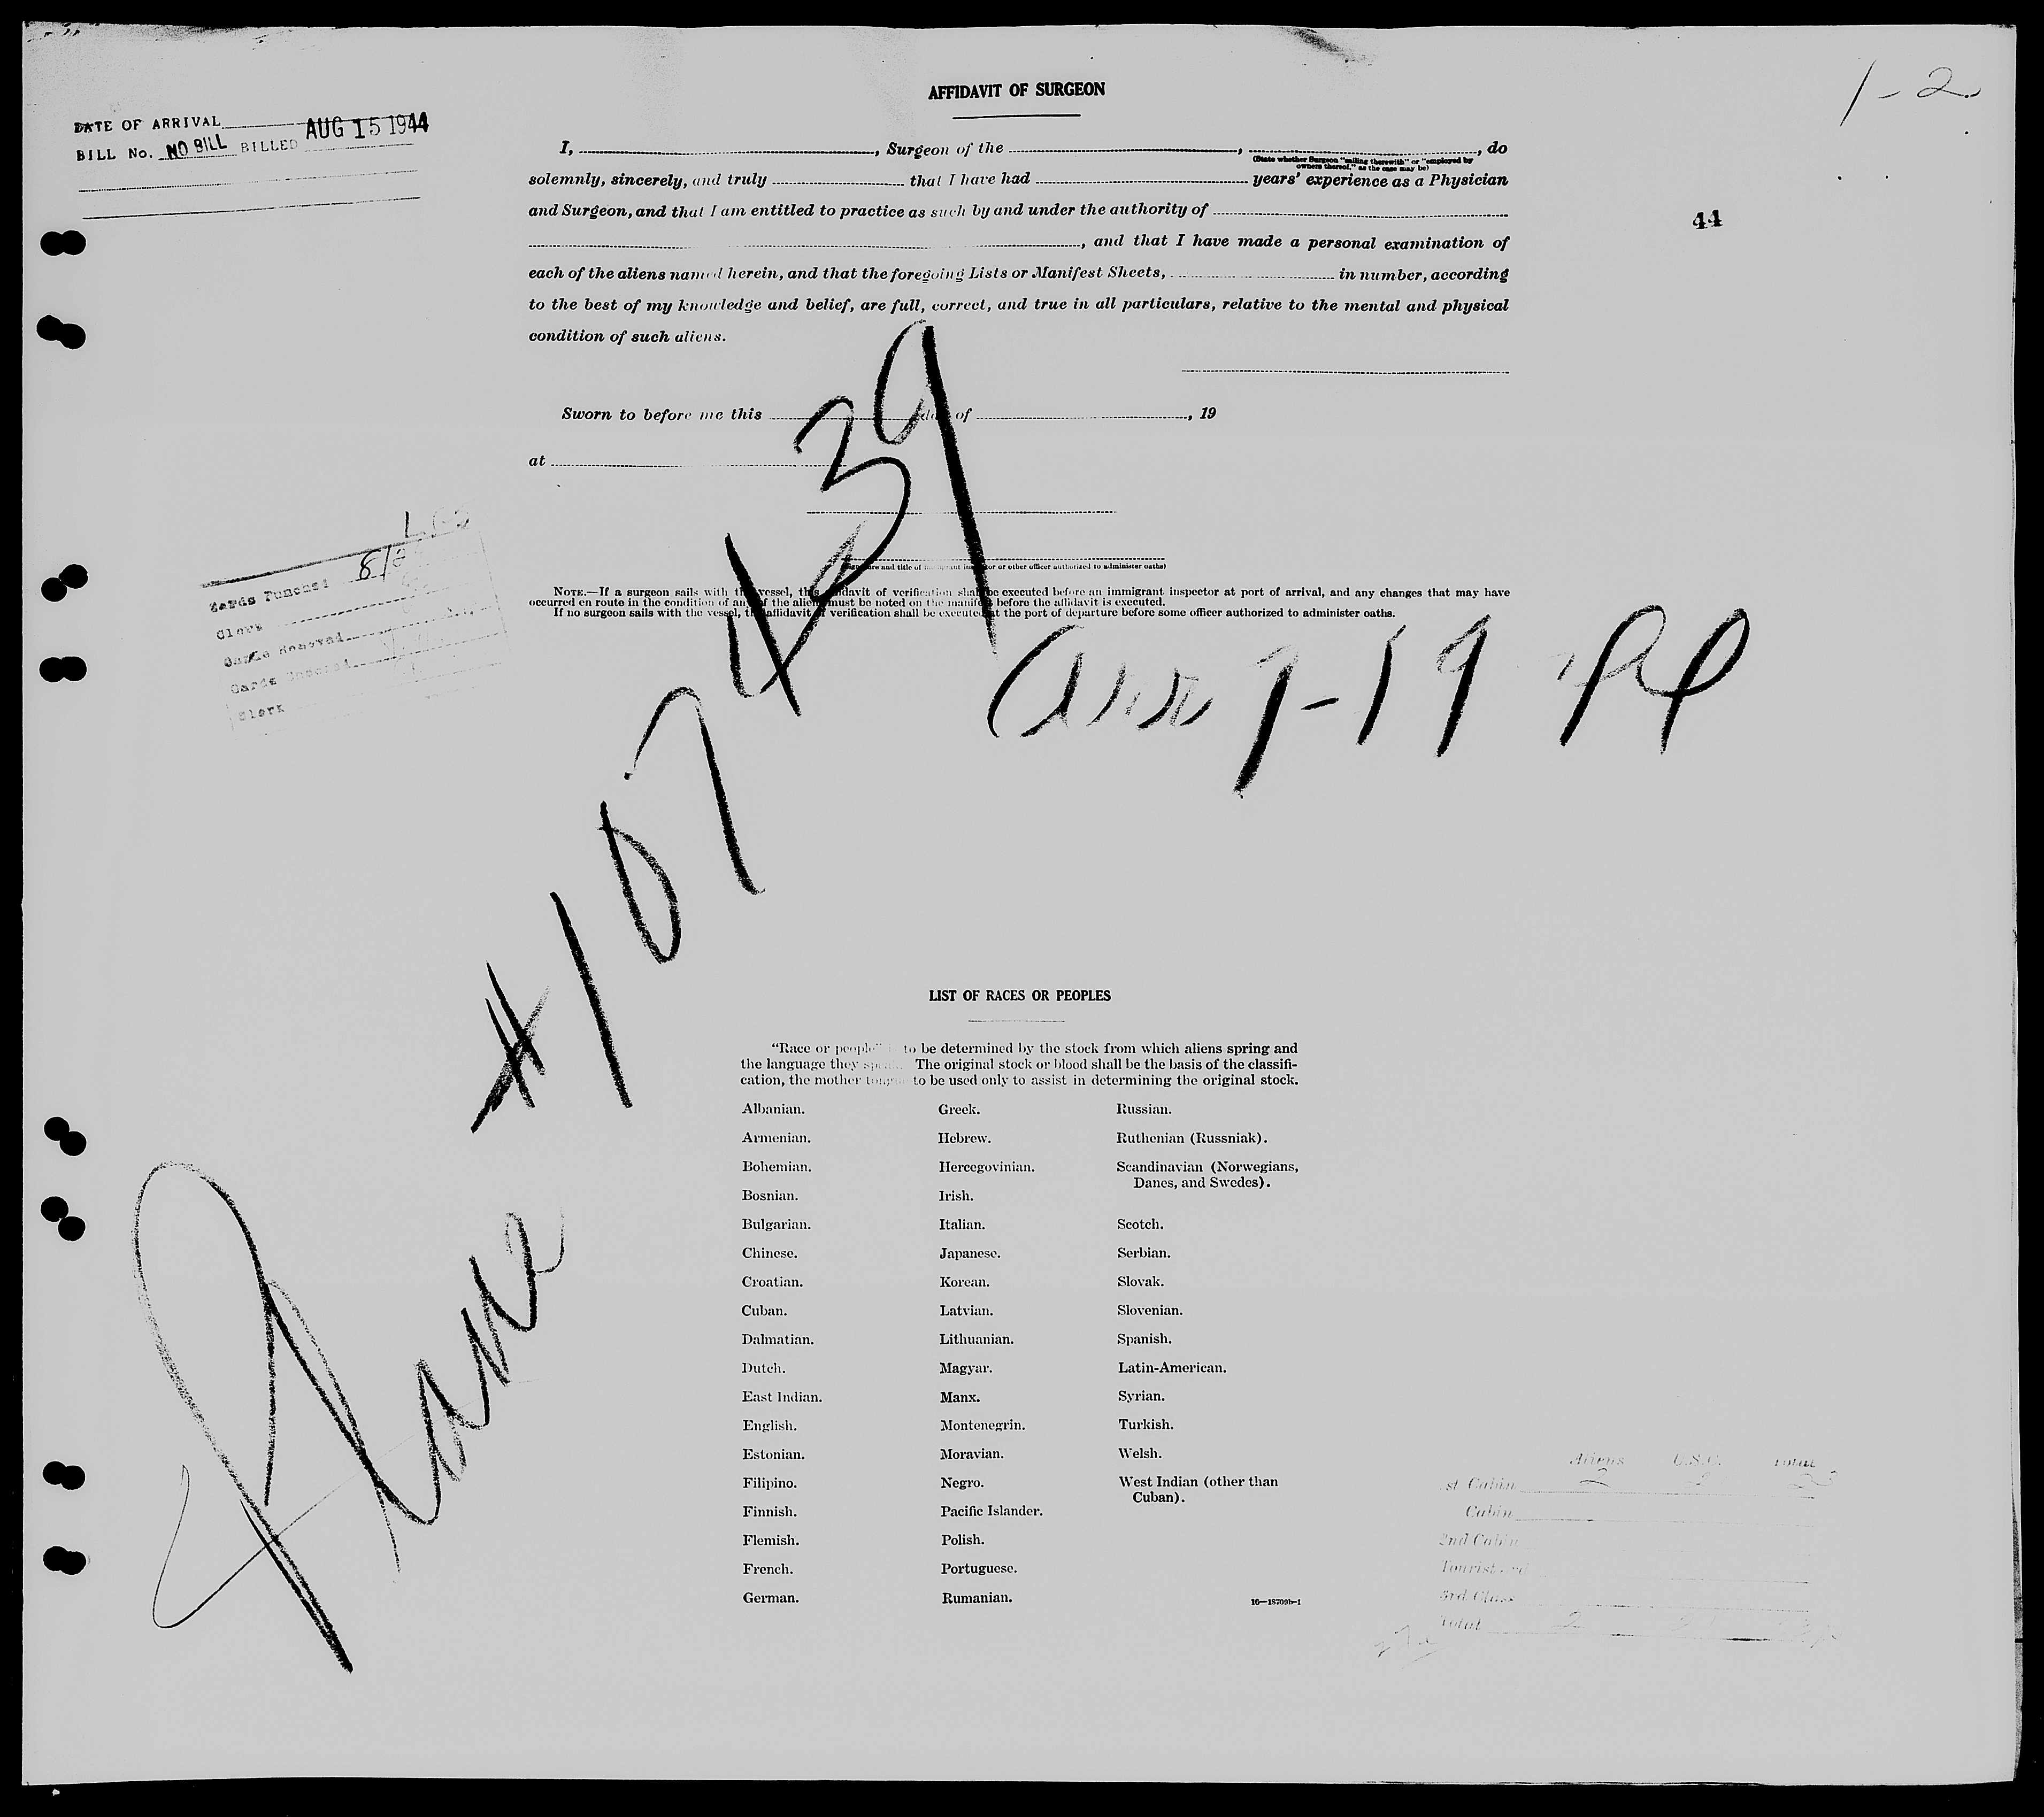 AFFIDAVIT OF SURGEON
1-2
DATE OF ARRIVAL
AUG 15 1944
BILL No. NO BILL BILLED
I, , Surgeon of the , , do
(State whether Surgeon "sailing therewith" or "employed by
owners thereof," as the case may be)
solemnly, sincerely, and truly that I have had years' experience as a Physician
and Surgeon, and that I am entitled to practice as such by and under the authority of
44
, and that I have made a personal examination of
each of the aliens named herein, and that the foregoing Lists or Manifest Sheets, in number, according
to the best of my knowledge and belief, are full, correct, and true in all particulars, relative to the mental and physical
condition of such aliens.
Sworn to before me this day of , 19
at
(Signature and title of immigrant inspector or other officer authorized to administer oaths)
NOTE.—If a surgeon sails with the vessel, this affidavit of verification shall be executed before an immigrant inspector at port of arrival, and any changes that may have
occurred en route in the condition of any of the aliens must be noted on the manifest before the affidavit is executed.
If no surgeon sails with the vessel, the affidavit of verification shall be executed at the port of departure before some officer authorized to administer oaths.
Cards Punched 8/
Clerk
Cards Removed
Cards
Clerk
Plane #107439
7-19 44
LIST OF RACES OR PEOPLES
"Race or people" is to be determined by the stock from which aliens spring and
the language they speak. The original stock or blood shall be the basis of the classifi-
cation, the mother tongue to be used only to assist in determining the original stock.
Albanian.
Armenian.
Bohemian.
Bosnian.
Bulgarian.
Chinese.
Croatian.
Cuban.
Dalmatian.
Dutch.
East Indian.
English.
Estonian.
Filipino.
Finnish.
Flemish.
French.
German.
Greek.
Hebrew.
Hercegovinian.
Irish.
Italian.
Japanese.
Korean.
Latvian.
Lithuanian.
Magyar.
Manx.
Montenegrin.
Moravian.
Negro.
Pacific Islander.
Polish.
Portuguese.
Rumanian.
Russian.
Ruthenian (Russniak).
Scandinavian (Norwegians,
Danes, and Swedes).
Scotch.
Serbian.
Slovak.
Slovenian.
Spanish.
Latin-American.
Syrian.
Turkish.
Welsh.
West Indian (other than
Cuban).
16—18709b-1
Aliens U.S.C. Total
1st Cabin 2
Cabin
2nd Cabin
Tourist
3rd Class
Total 2